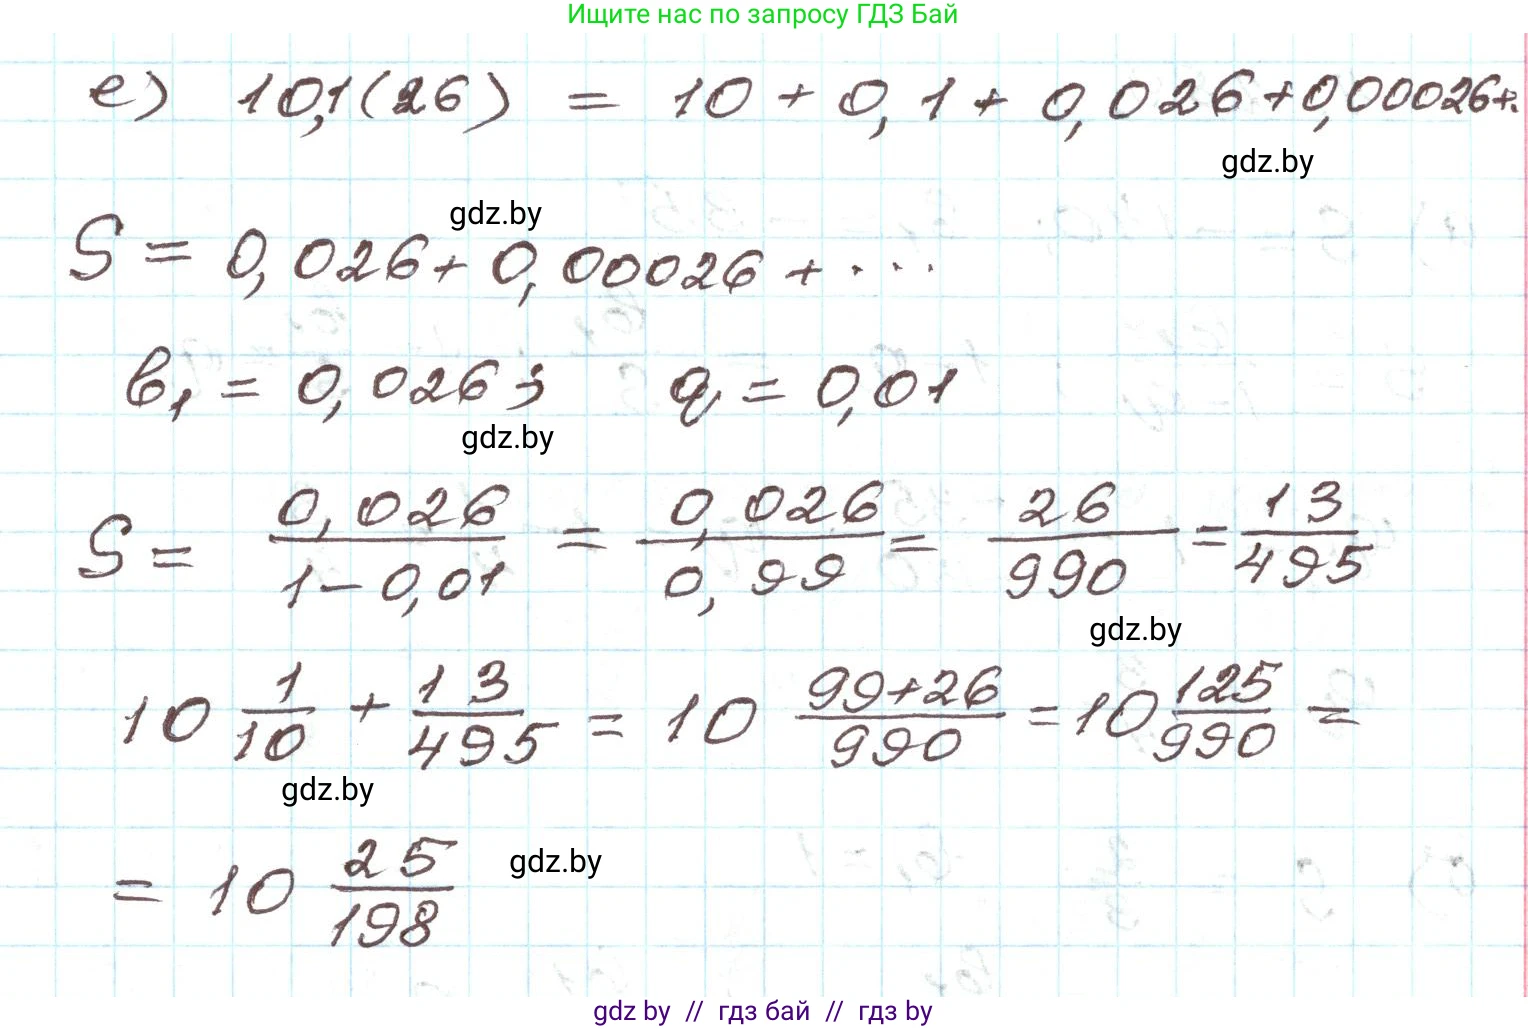 Ищите нас по запросу ГДЗ Бай
е) 10,1(26) = 10 + 0,1 + 0,026 + 0,00026 + ..
gdz.by
gdz.by
S = 0,026 + 0,00026 + ...
b₁ = 0,026; q = 0,01
gdz.by
S = 0,026/(1-0,01) = 0,026/0,99 = 26/990 = 13/495
gdz.by
10 1/10 + 13/495 = 10 (99+26)/990 = 10 125/990 =
gdz.by
= 10 25/198
gdz.by
gdz by // гдз бай // gdz by